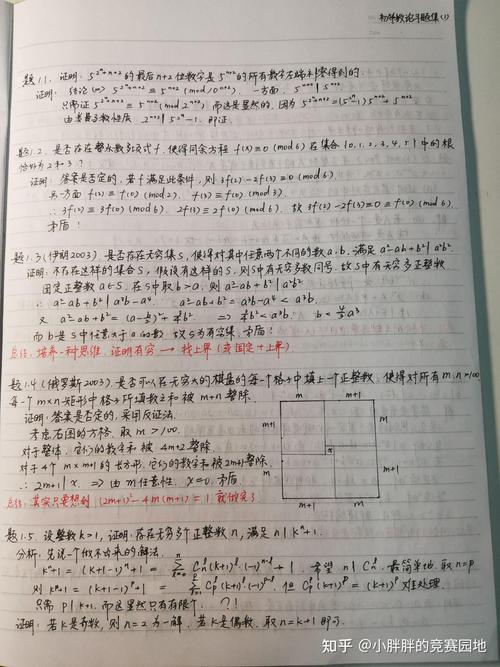 初等数论习题集(1)
题1.1. 证明: 5^{2^n+n+2} 的最后n+2位数字是 5^{n+2} 的所有数字左端补零得到的.
证明: 结论 ⟺ 5^{2^n+n+2} ≡ 5^{n+2} (mod 10^{n+2}). 一方面, 5^{n+2} | 5^{n+2}
只需证 5^{2^n+n+2} ≡ 5^{n+2} (mod 2^{n+2}) 而这是显然的. 因为 5^{2^n+n+2} = (5^{2^n}-1)5^{n+2} + 5^{n+2}
由 2^{n+2} | 5^{2^n}-1. 即证.
题1.2. 是否存在整系数多项式f, 使得同余方程 f(x)≡0 (mod 6) 在集合 {0,1,2,3,4,5} 中的根
恰好为2和3?
证明: 答案是否定的, 若f满足此条件, 则 3f(2)-2f(3)≡0 (mod 6)
另一方面 f(2)≡f(0) (mod 2), f(3)≡f(0) (mod 3).
∴ 3f(2)≡3f(0) (mod 6), 2f(3)≡2f(0) (mod 6). 故 3f(2)-2f(3)≡0≡f(0) (mod 6).
矛盾!
题1.3 (伊朗2003). 是否存在无穷集S, 使得对其中任意两个不同的数a,b, 满足 a²-ab+b² | a²b².
证明: 不存在这样的集合S, 假设有这样的S. 则S中有无穷多数同号. 故S中有无穷多正整数.
固定正整数a∈S, 在S中取b>a, 则 a²-ab+b² | a²b²
∴ a²-ab+b² | a³b-a⁴, a²-ab+b² ≤ a³b-a⁴ < a³b.
又 a²-ab+b² = (a-b/2)²+¾b² ⟹ ¾b² < a³b, b < 4/3 a³
而b是S中任意大于a的数. 故S为有穷集, 矛盾!
总结: 培养一种思维. 证明有穷 ⟶ 找上界 (或固定+上界).
题1.4 (俄罗斯2003). 是否可以在无穷大的棋盘的每一个格子中填上一个正整数, 使得对所有 m,n>100
每一个m×n矩形中格子所填数之和被 m+n 整除.
证明: 答案是否定的, 采用反证法.
考虑右图的方格, 取 m>100.
对于整体, 它们的数字和被 4m+2 整除
对于4个 m×m+1 的长方形, 它们的数字和被 2m+1 整除.
∴ 2m+1 | x. ⟹ 由m任意性. x=0. 矛盾.
总结: 其实只要想到 (2m+1)²-4m(m+1)=1 就做完了
m
m+1
m+1
m
x
m
m+1
m+1
m
题1.5. 设整数k>1, 证明: 存在无穷多个正整数n, 满足 n | k^n+1.
分析: 先说一个做不出来的解法.
k^n+1 = (k+1-1)^n+1 = Σ_{i=0}^{n} C_n^i (k+1)^i·(-1)^{n-i} + 1. 希望 n | C_n^i. 最简单地. 取 n=p
则 k^p+1 = (k+1-1)^p+1 = Σ_{i=1}^{p} C_p^i (k+1)^i·(-1)^{p-i}. 但 C_p^p (k+1)^p = (k+1)^p 难处理.
只需 p | k+1, 而这显然只有有限个. ?!
证明: 若k是奇数, 则 n=2 为一解. 若k是偶数, 取 n=k+1 即可.
知乎 @小胖胖的竞赛园地